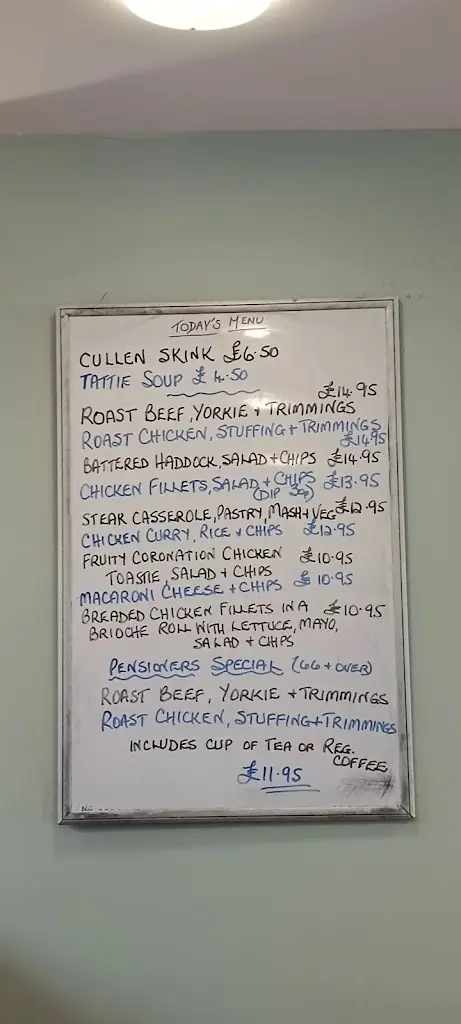 TODAY'S MENU
CULLEN SKINK £6.50
TATTIE SOUP £4.50
£14.95
ROAST BEEF, YORKIE + TRIMMINGS
ROAST CHICKEN, STUFFING + TRIMMINGS
£14.95
BATTERED HADDOCK, SALAD + CHIPS £14.95
CHICKEN FILLETS, SALAD + CHIPS £13.95
(DIP 30p)
STEAK CASSEROLE, PASTRY, MASH + VEG £12.95
CHICKEN CURRY, RICE + CHIPS £12.95
FRUITY CORONATION CHICKEN £10.95
TOASTIE, SALAD + CHIPS
MACARONI CHEESE + CHIPS £10.95
BREADED CHICKEN FILLETS IN A £10.95
BRIOCHE ROLL WITH LETTUCE, MAYO,
SALAD + CHIPS
PENSIONERS SPECIAL (66 + OVER)
ROAST BEEF, YORKIE + TRIMMINGS
ROAST CHICKEN, STUFFING + TRIMMINGS
INCLUDES CUP OF TEA OR REG.
COFFEE
£11.95